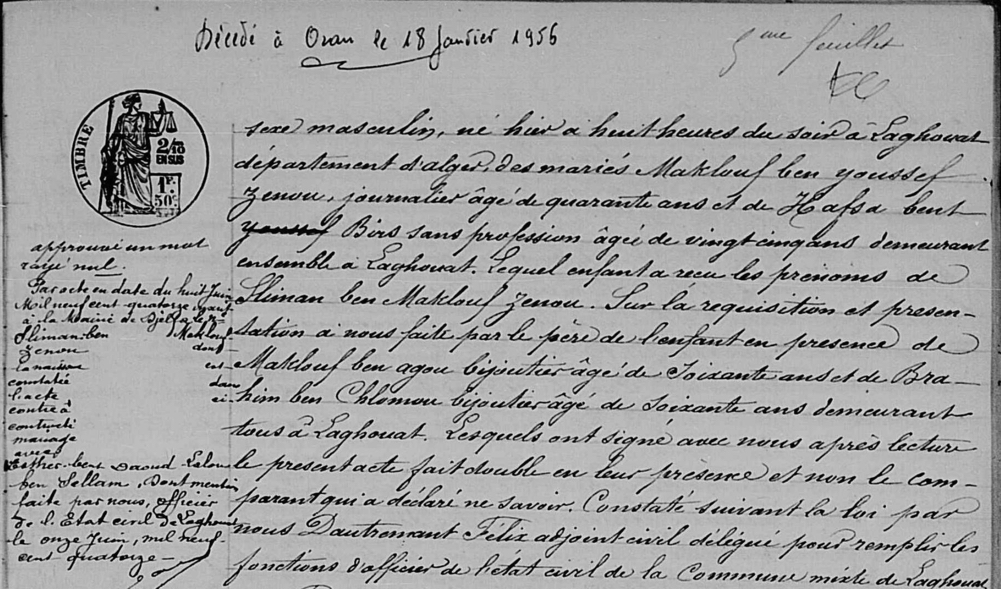 Décédé à Oran le 18 Janvier 1956
5me feuillet
TIMBRE
2/10
EN SUS
1F.
50c.
sexe masculin, né hier à huit heures du soir à Laghouat
département d'alger, des mariés Maklouf ben youssef
Zenou, journalier âgé de quarante ans et de Hafsa bent
youssef Birs sans profession âgée de vingt cinq ans demeurant
ensemble à Laghouat. Lequel enfant a recu les prénoms de
Sliman ben Maklouf Zenou. Sur la requisition et presen-
tation à nous faite par le père de l'enfant en presence de
Maklouf ben agou bijoutier âgé de Soixante ans et de Bra-
him ben Chlomou bijoutier âgé de soixante ans demeurant
tous à Laghouat. Lesquels ont signé avec nous après lecture
le present acte fait double en leur présence et non le com-
parant qui a déclaré ne savoir. Constaté suivant la loi par
nous Dautremant Félix adjoint civil délégué pour remplir les
fonctions d'officier de l'état civil de la Commune mixte de Laghouat
approuvé un mot
rayé nul.
Par acte en date du huit Juin
Mil neuf cent quatorze
à la Mairie de Djelfa le
Sliman ben Maklouf
Zenou dont
la naissance est
constatée dans
l'acte ci
contre à
contracté
mariage
avec
Esther bent Daoud Lalou
ben Sellam, Dont mention
faite par nous, officier
de l'Etat civil de Laghouat
le onze Juin, mil neuf
cent quatorze